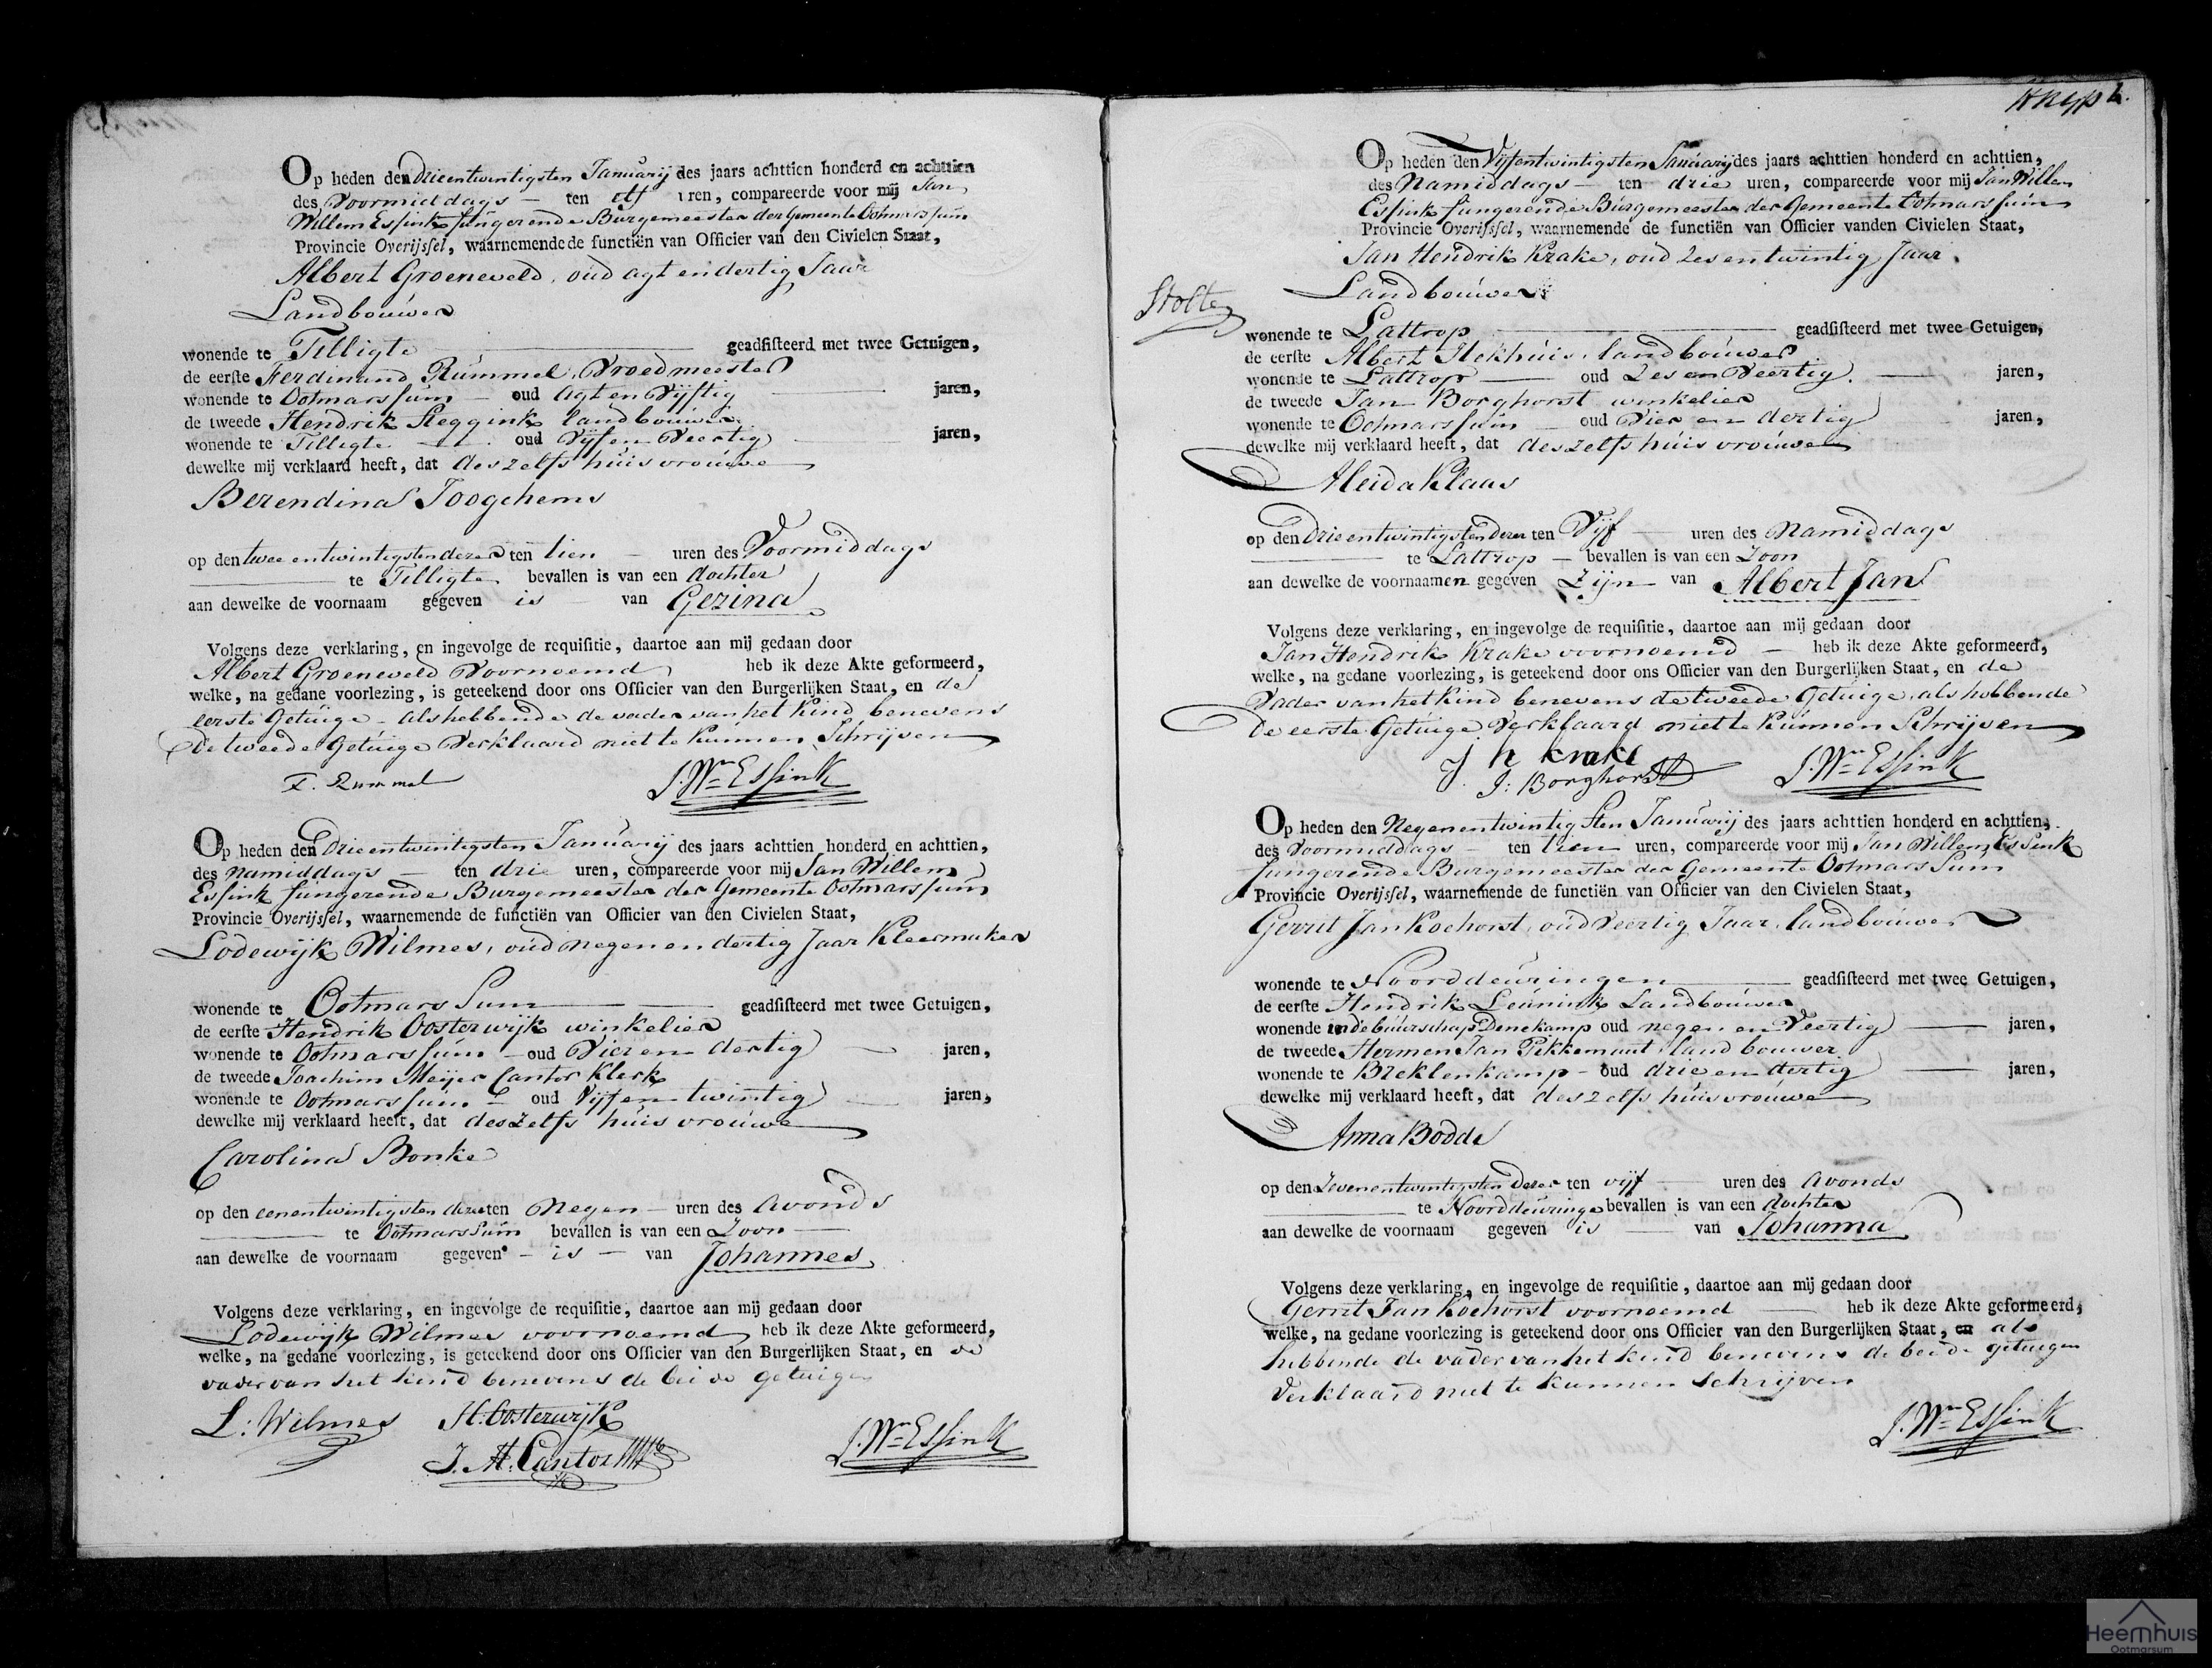 Op heden den drieentwintigsten Januarij des jaars achttien honderd en achttien
des Voormiddags ten elf uren, compareerde voor mij Jan
Willem Essink fungerende Burgemeester der Gemeente Ootmarssum
Provincie Overijssel, waarnemende de functiën van Officier van den Civielen Staat,
Albert Groeneveld, oud agt en dertig Jaar
Landbouwer
wonende te Tilligte geadsisteerd met twee Getuigen,
de eerste Ferdinand Rummel, Vroedmeester
wonende te Ootmarssum oud agt en Vijftig jaren,
de tweede Hendrik Steggink landbouwer
wonende te Tilligte oud Vijf en Veertig jaren,
dewelke mij verklaard heeft, dat deszelfs huisvrouwe
Berendina Joogchems
op den twee entwintigsten dezer ten tien uren des Voormiddags
te Tilligte bevallen is van een dochter
aan dewelke de voornaam gegeven is van Gezina
Volgens deze verklaring, en ingevolge de requisitie, daartoe aan mij gedaan door
Albert Groeneveld Voornoemd heb ik deze Akte geformeerd,
welke, na gedane voorlezing, is geteekend door ons Officier van den Burgerlijken Staat, en de
eerste Getuige - als hebbende de vader van het Kind, benevens
de tweede Getuige Verklaard niet te Kunnen Schrijven
F. Rummel J. Wm Essink
Op heden den drieentwintigsten Januarij des jaars achttien honderd en achttien,
des namiddags ten drie uren, compareerde voor mij Jan Willem
Essink fungerende Burgemeester der Gemeente Ootmarssum
Provincie Overijssel, waarnemende de functiën van Officier van den Civielen Staat,
Lodewijk Wilmes, oud negen en dertig Jaar Kleermaker
wonende te Ootmarssum geadsisteerd met twee Getuigen,
de eerste Hendrik Oosterwijk winkelier
wonende te Ootmarssum - oud Vier en dertig jaren,
de tweede Joachim Meijer Cantor Klerk
wonende te Ootmarssum oud Vijf en twintig jaren,
dewelke mij verklaard heeft, dat deszelfs huisvrouwe
Carolina Bonke
op den eenentwintigsten dezer ten Negen - uren des Avonds
te Ootmarssum bevallen is van een Zoon
aan dewelke de voornaam gegeven - is - van Johannes
Volgens deze verklaring, en ingevolge de requisitie, daartoe aan mij gedaan door
Lodewijk Wilmes voornoemd heb ik deze Akte geformeerd,
welke, na gedane voorlezing, is geteekend door ons Officier van den Burgerlijken Staat, en de
vader van het kind benevens de beide getuigen
L: Wilmes H. Oosterwijk
J. M. Cantor J. Wm Essink
Op heden den Vijfentwintigsten Januarij des jaars achttien honderd en achttien,
des Namiddags ten drie uren, compareerde voor mij Jan Willem
Essink fungerende Burgemeester der Gemeente Ootmarssum
Provincie Overijssel, waarnemende de functiën van Officier van den Civielen Staat,
Jan Hendrik Krake, oud zes en twintig Jaar.
Landbouwer
Stolte
wonende te Lattrop geadsisteerd met twee Getuigen,
de eerste Albert Stekhuis, landbouwer
wonende te Lattrop oud Zes en Veertig jaren,
de tweede Jan Borghorst winkelier
wonende te Ootmarssum oud Vier en dertig jaren,
dewelke mij verklaard heeft, dat deszelfs huisvrouwe
Aleida Klaas
op den drieentwintigsten dezer ten Vijf uren des Namiddags
te Lattrop bevallen is van een Zoon
aan dewelke de voornaamen gegeven Zijn van Albert Jan
Volgens deze verklaring, en ingevolge de requisitie, daartoe aan mij gedaan door
Jan Hendrik Krake voornoemd heb ik deze Akte geformeerd,
welke, na gedane voorlezing, is geteekend door ons Officier van den Burgerlijken Staat, en de
Vader van het kind benevens de tweede Getuige, als hebbende
de eerste Getuige Verklaard niet te Kunnen Schrijven
J h krake
J: Borghorst J. Wm Essink
Op heden den Negenentwintigsten Januarij des jaars achttien honderd en achttien,
des Voormiddags ten tien uren, compareerde voor mij Jan Willem Essink
fungerende Burgemeester der Gemeente Ootmarssum
Provincie Overijssel, waarnemende de functiën van Officier van den Civielen Staat,
Gerrit Jan Koehorst, oud Veertig Jaar, landbouwer
wonende te Noorddeuringen geadsisteerd met twee Getuigen,
de eerste Hendrik Leunink Landbouwer
wonende in de buurschap Denekamp oud negen en Veertig jaren,
de tweede Hermen Jan Pikkemaat landbouwer
wonende te Breklenkamp - oud drie en dertig jaren,
dewelke mij verklaard heeft, dat deszelfs huisvrouwe
Anna Bodde
op den Zevenentwintigsten dezer ten vijf uren des Avonds
te Noorddeuringe bevallen is van een dochter
aan dewelke de voornaam gegeven is van Johanna
Volgens deze verklaring, en ingevolge de requisitie, daartoe aan mij gedaan door
Gerrit Jan Koehorst voornoemd heb ik deze Akte geformeerd,
welke, na gedane voorlezing is geteekend door ons Officier van den Burgerlijken Staat, en als
hebbende de vader van het kind benevens de beide getuigen
Verklaard niet te kunnen Schrijven
J. Wm Essink
Heemhuis
Ootmarsum